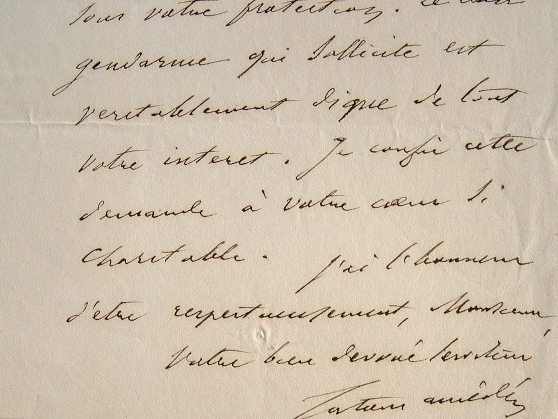 sous votre protection. Le
gendarme qui sollicite est
veritablement digne de tout
votre interet. Je confie cette
demande à votre cœur si
charitable. J'ai l'honneur
d'etre respectueusement, Monsieur,
Votre bien devoué serviteur